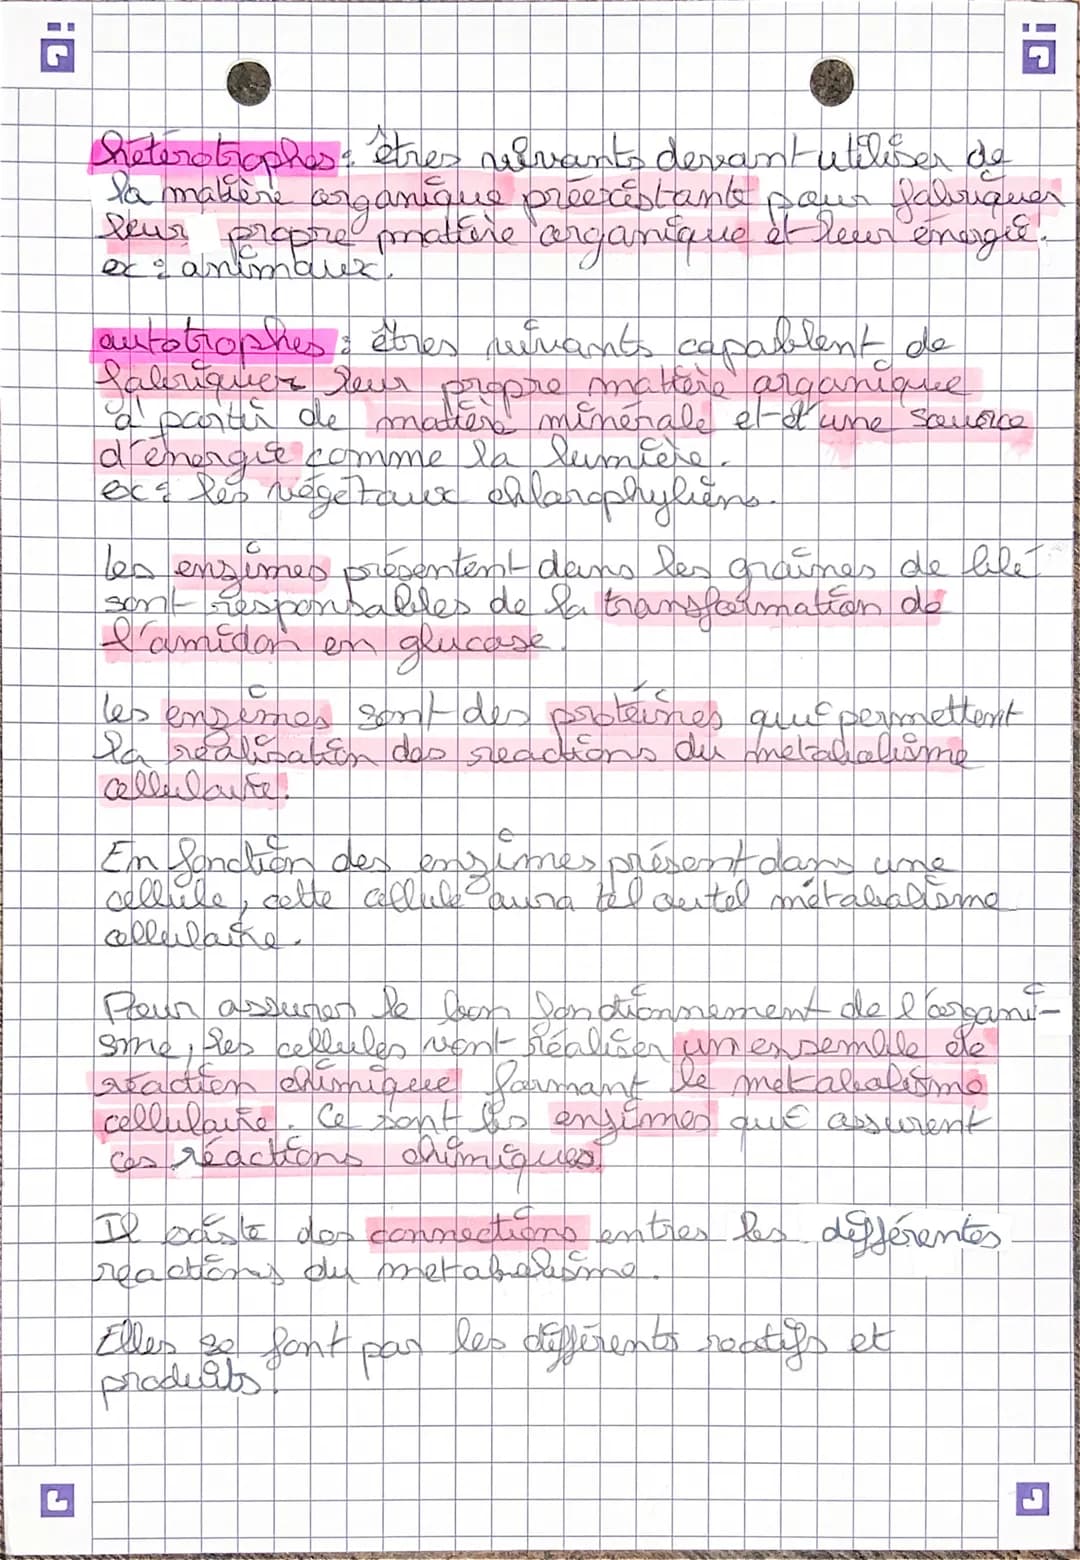 hétérotrophes : êtres vivants devant utiliser de
la matière organique préexistante pour fabriquer
leur propre matière organique et leur énergie.
ex : animaux.
autotrophes : êtres vivants capablent de
fabriquer leur propre matière organique
à partir de matière minérale et d'une source
d'énergie comme la lumière.
ex : les végétaux chlorophyliens.
les enzimes présentent dans les graines de blé
sont responsables de la transformation de
l'amidon en glucose.
les enzimes sont des protéines qui permettent
la réalisation des reactions du métabolisme
cellulaire.
En fonction des enzimes présent dans une
cellule, cette cellule aura tel ou tel métabolisme
cellulaire.
Pour assurer le bon fonctionnement de l'organi-
sme, les cellules vont réaliser un ensemble de
réaction chimique formant le métabolisme
cellulaire. Ce sont les enzimes qui assurent
ces réactions chimiques.
Il existe des connections entres les différentes
réactions du metabolisme.
Elles se font par les différents reatifs et
produits.